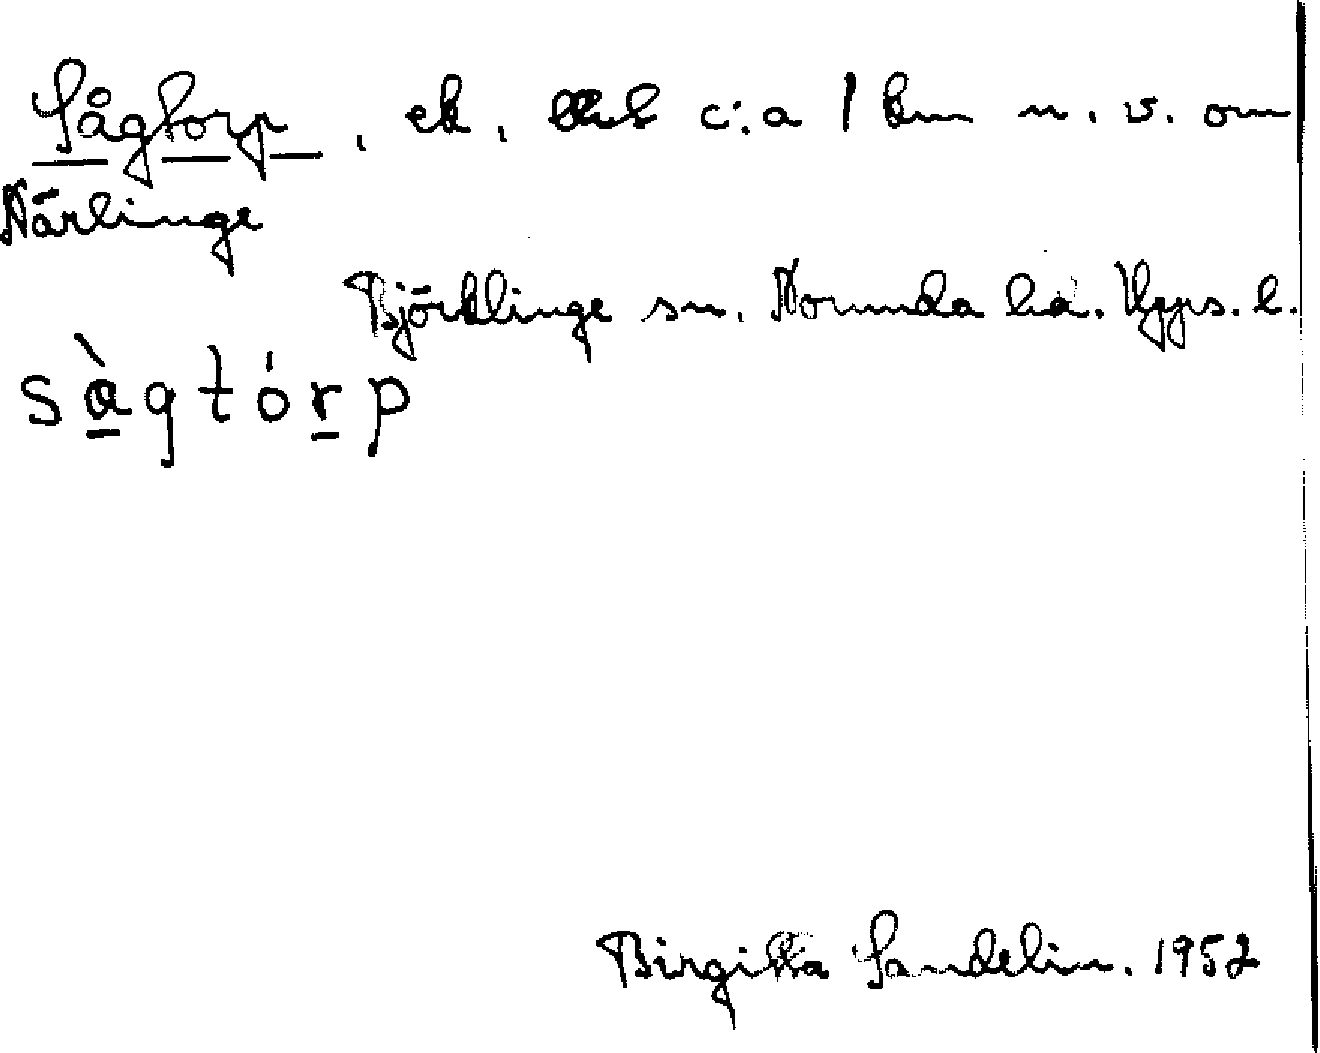 Sågtorp, ek. c:a 1 km n.v. om
Närlinge
Björklinge sn. Norunda hd. Upps. l.
sàgtórp
Birgitta Sandelin. 1952